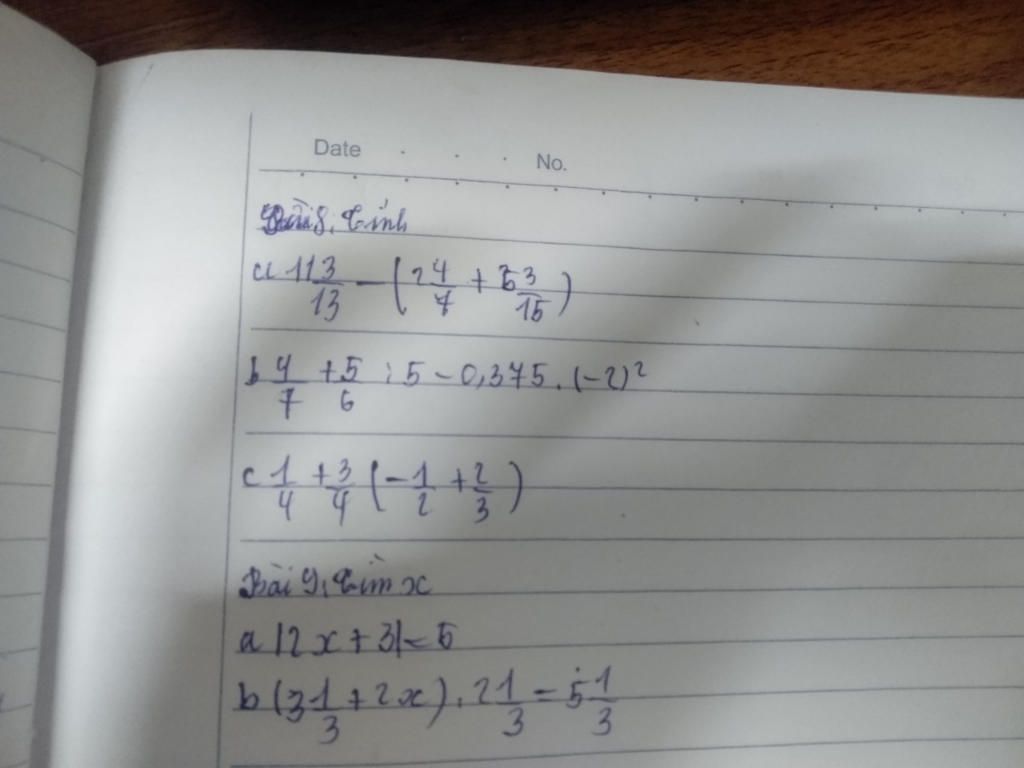 Date No.
Bài 8, Tính
a 11 3/13 - (2 4/7 + 5 3/15)
b 4/7 + 5/6 : 5 - 0,375 . (-2)²
c 1/4 + 3/4 (-1/2 + 2/3)
Bài 9, Tìm x
a |2x + 3| = 5
b (3 1/3 + 2x) . 2 1/3 = 5 1/3